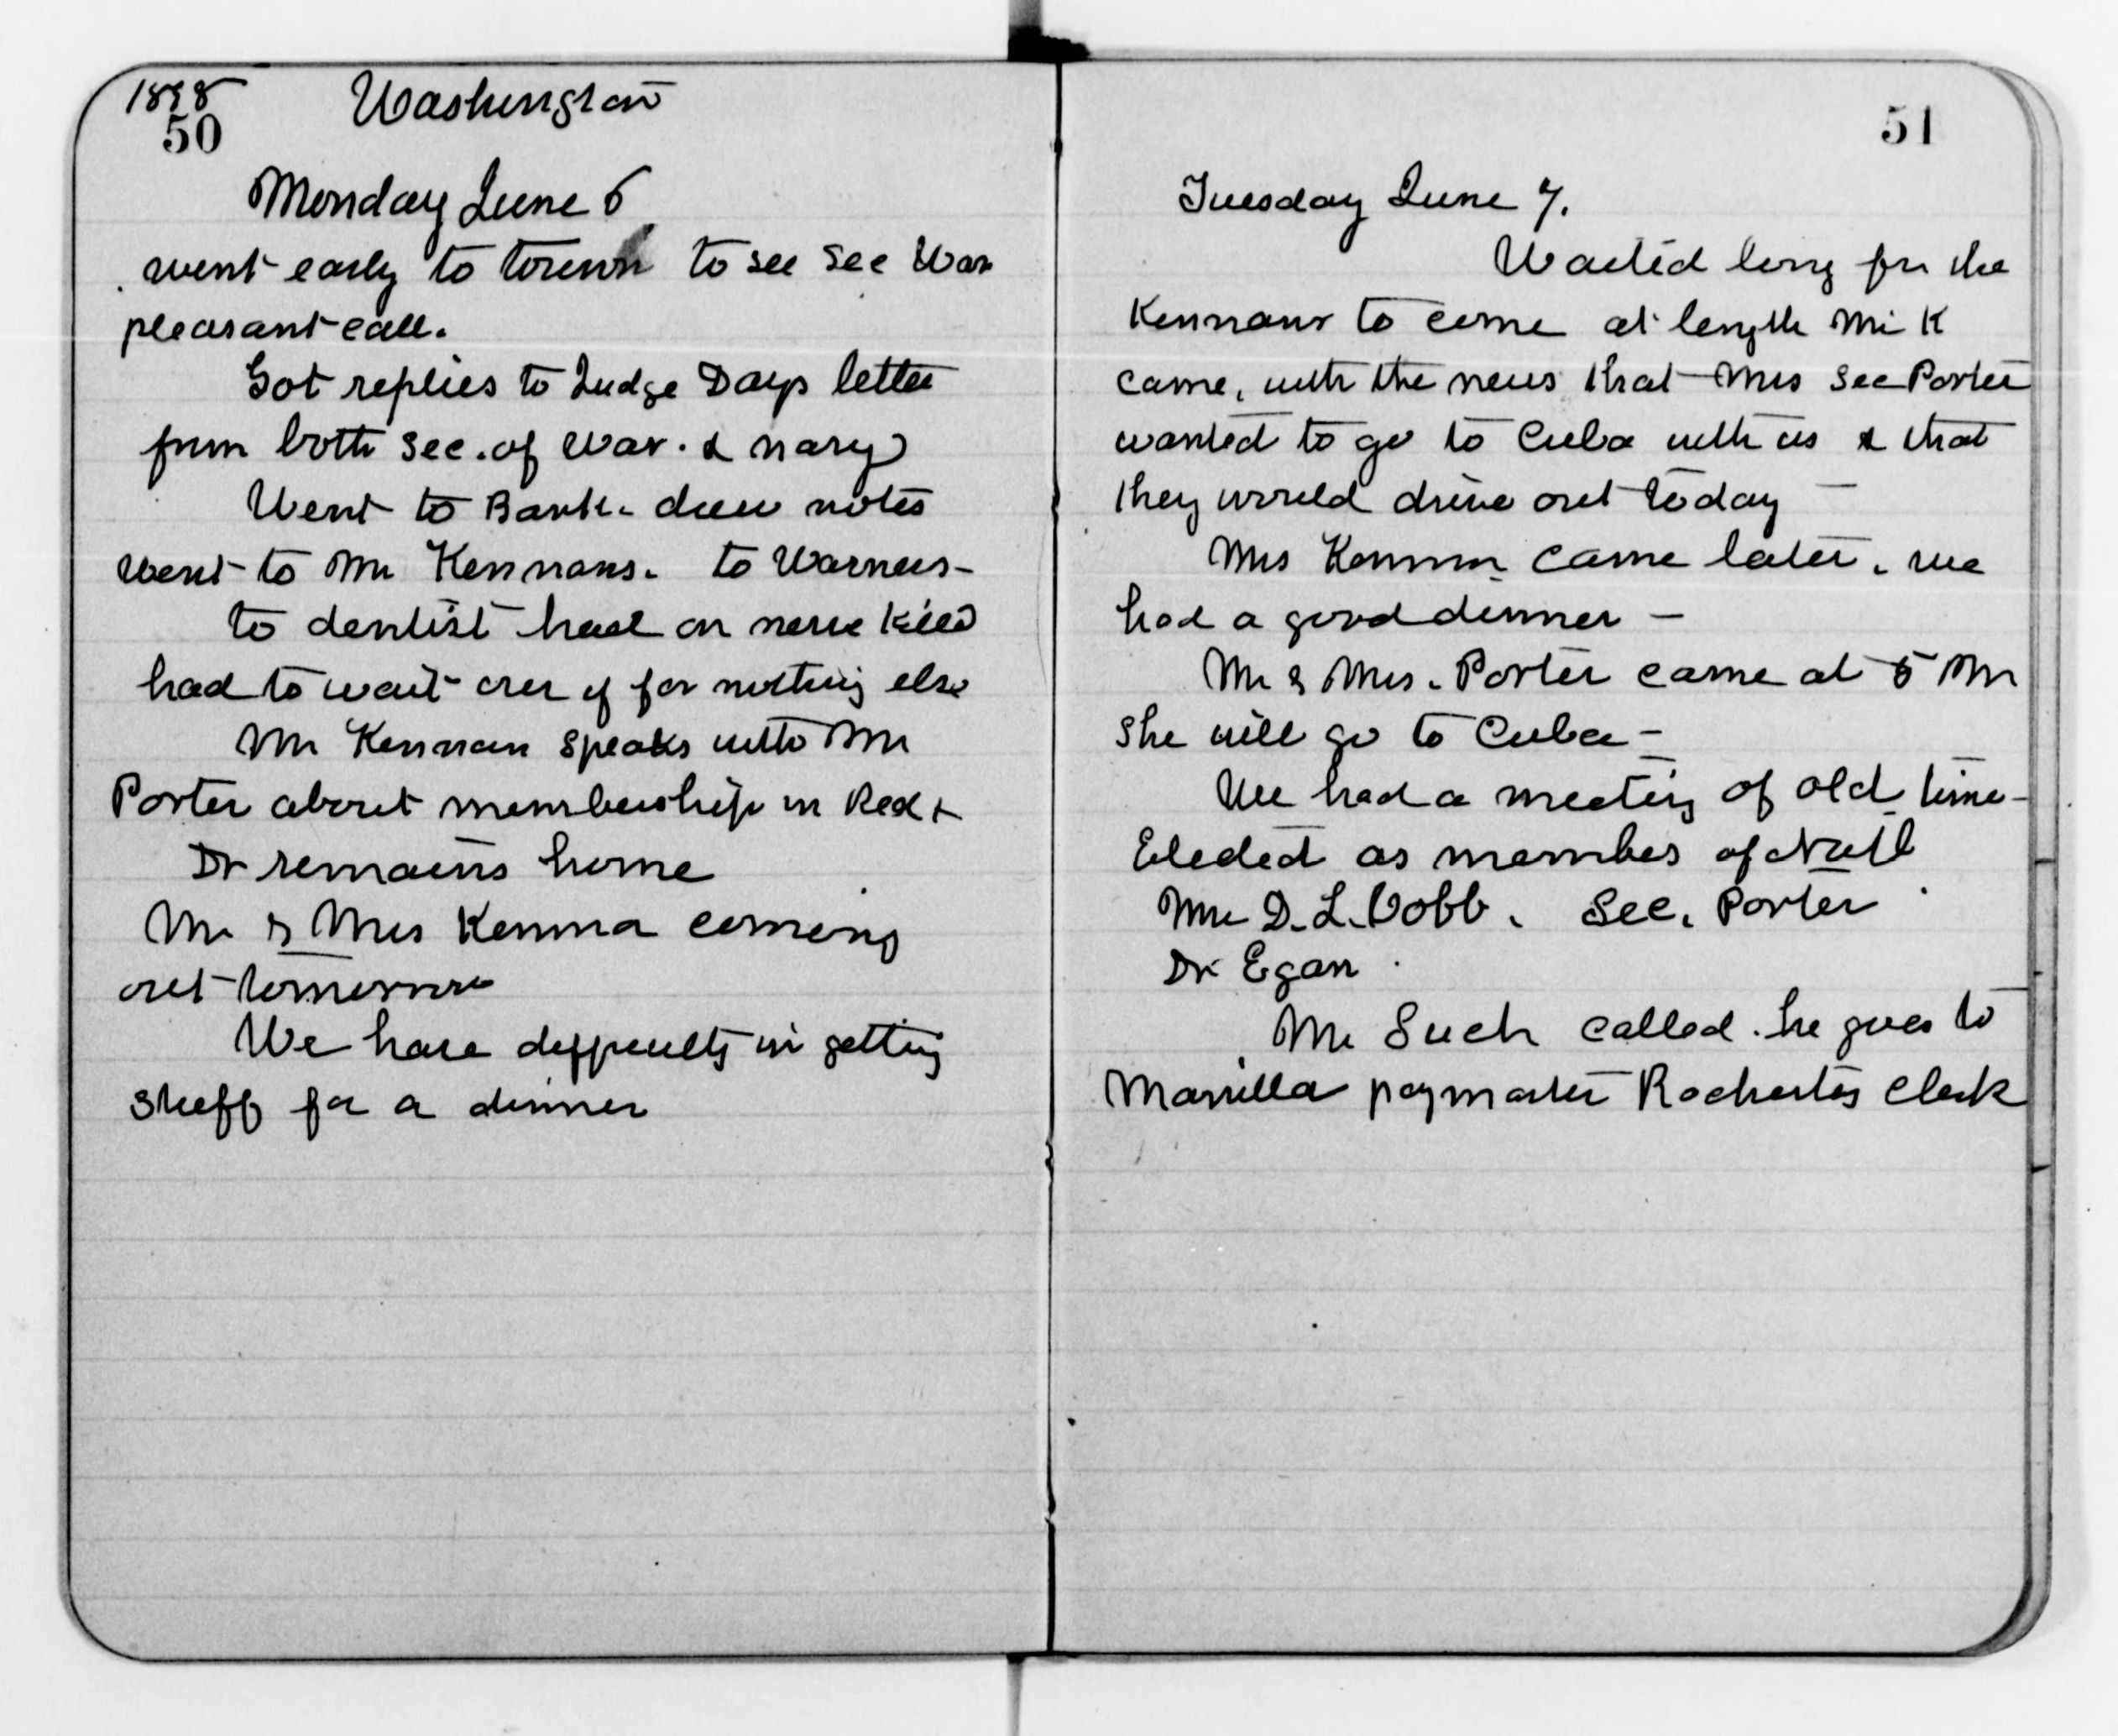 1898 Washington
50
Monday June 6
went early to town to see Sec War
pleasant call.
Got replies to Judge Days letter
from both Sec. of War. & navy
Went to Bank. drew notes
went to Mr Kennans. to Warners -
to dentist had on nerve killed
had to wait over if for nothing else
Mr Kennan speaks with Mr
Porter about membership in Red +
Dr remains home
Mr & Mrs Kenna coming
out tomorrow
We have difficulty in getting
stuff for a dinner
51
Tuesday June 7.
Waited long for the
Kennans to come at length Mr K
came, with the news that Mrs Sec Porter
wanted to go to Cuba with us & that
they would drive out today -
Mrs Kennan came later. we
had a good dinner -
Mr & Mrs. Porter came at 5 Mr
She will go to Cuba -
We had a meeting of old time -
Elected as members of Natl
Mr D. L. Cobb. Sec. Porter
Dr Egan.
Mr Such called. he goes to
Manilla paymaster Rochesters Clerk